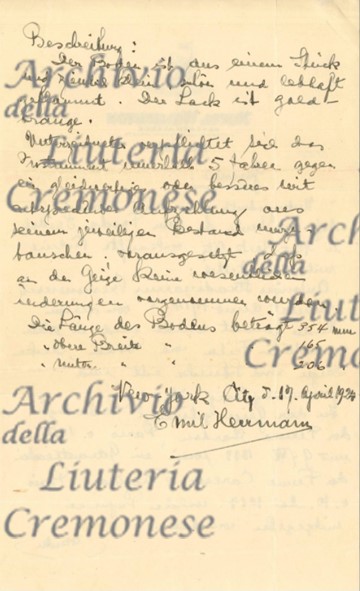 Beschreibung:
Der Boden ist aus einem Stück
und schön und lebhaft
geflammt. Der Lack ist gold-
orange.
Unterzeichneter verpflichtet sich das
Instrument innerhalb 5 Jahre gegen
ein gleichwertiges oder besseres mit
aus
seinem jeweiligen Bestand um
tauschen. vorausgesetzt
an der Geige keine wesentlichen
änderungen vorgenommen wurden.
Die Länge des Bodens beträgt 354 mm
" obere Breite " 165
" untere " " 206 "
New-York City d. 19. April 1924
Emil Herrmann
Archivio
della
Liuteria
Cremonese
Archivio
della
Cremonese
Archivio
della
Liuteria
Cremonese